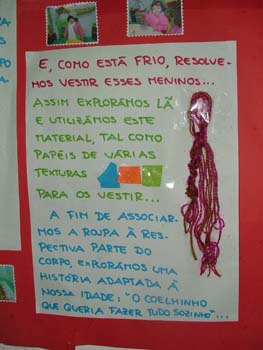 E, COMO ESTÁ FRIO, RESOLVE-
MOS VESTIR ESSES MENINOS...
ASSIM EXPLORÁMOS LÃ
E UTILIZÁMOS ESTE
MATERIAL, TAL COMO
PAPÉIS DE VÁRIAS
TEXTURAS
PARA OS VESTIR...
A FIM DE ASSOCIAR-
MOS A ROUPA À RES-
PECTIVA PARTE DO
CORPO, EXPLORÁMOS UMA
HISTÓRIA ADAPTADA À
NOSSA IDADE: "O COELHINHO
QUE QUERIA FAZER TUDO SOZINHO"...